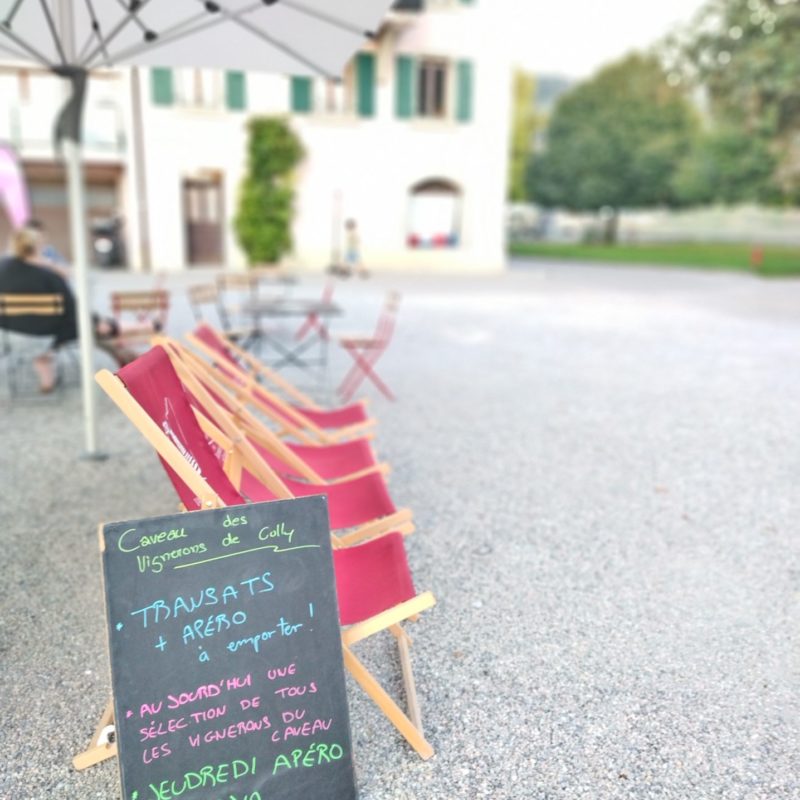 Caveau des
Vignerons de Cully
• TRANSATS
+ APÉRO
à emporter !
• AUJOURD'HUI UNE
SÉLECTION DE TOUS
LES VIGNERONS DU
CAVEAU
• VEUDREDI APÉRO